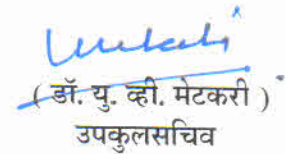 ( डॉ. यु. व्ही. मेटकरी )
उपकुलसचिव